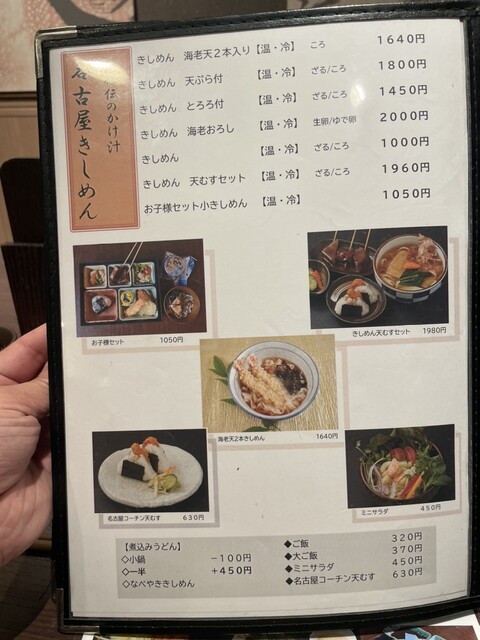 伝のかけ汁
名古屋きしめん
きしめん 海老天2本入り【温・冷】 ころ 1640円
きしめん 天ぷら付 【温・冷】 ざる/ころ 1800円
きしめん とろろ付 【温・冷】 ざる/ころ 1450円
きしめん 海老おろし 【温・冷】 生卵/ゆで卵 2000円
きしめん 【温・冷】 ざる/ころ 1000円
きしめん 天むすセット 【温・冷】 ざる/ころ 1960円
お子様セット小きしめん 【温・冷】 1050円
お子様セット 1050円
きしめん天むすセット 1980円
海老天2本きしめん 1640円
名古屋コーチン天むす 630円
ミニサラダ 450円
【煮込みうどん】
◇小鍋 －100円
◇一半 ＋450円
◇なべやききしめん
◆ご飯 320円
◆大ご飯 370円
◆ミニサラダ 450円
◆名古屋コーチン天むす 630円